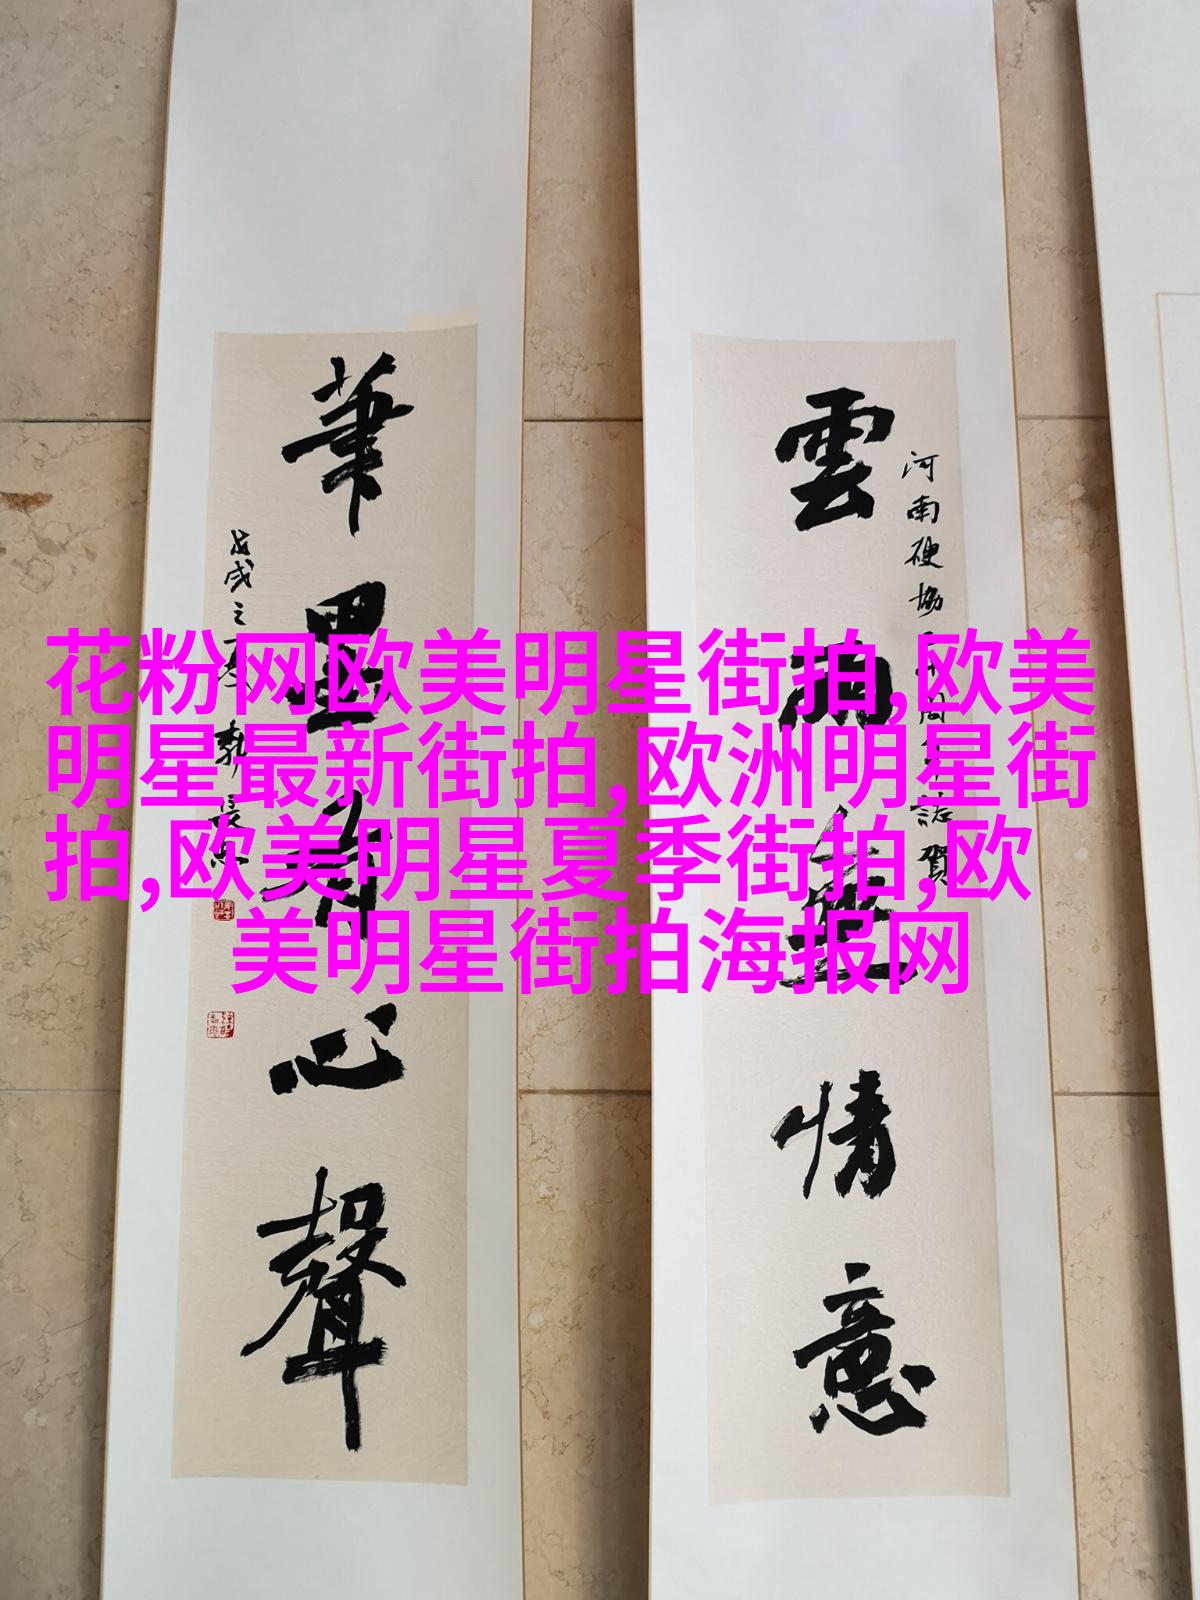 花粉网欧美明星街拍,欧美
明星最新街拍,欧洲明星街
拍,欧美明星夏季街拍,欧
美明星街拍海报网
雲雨無情意
河南硬協 周年誌賀
筆墨有心聲
戊戌之